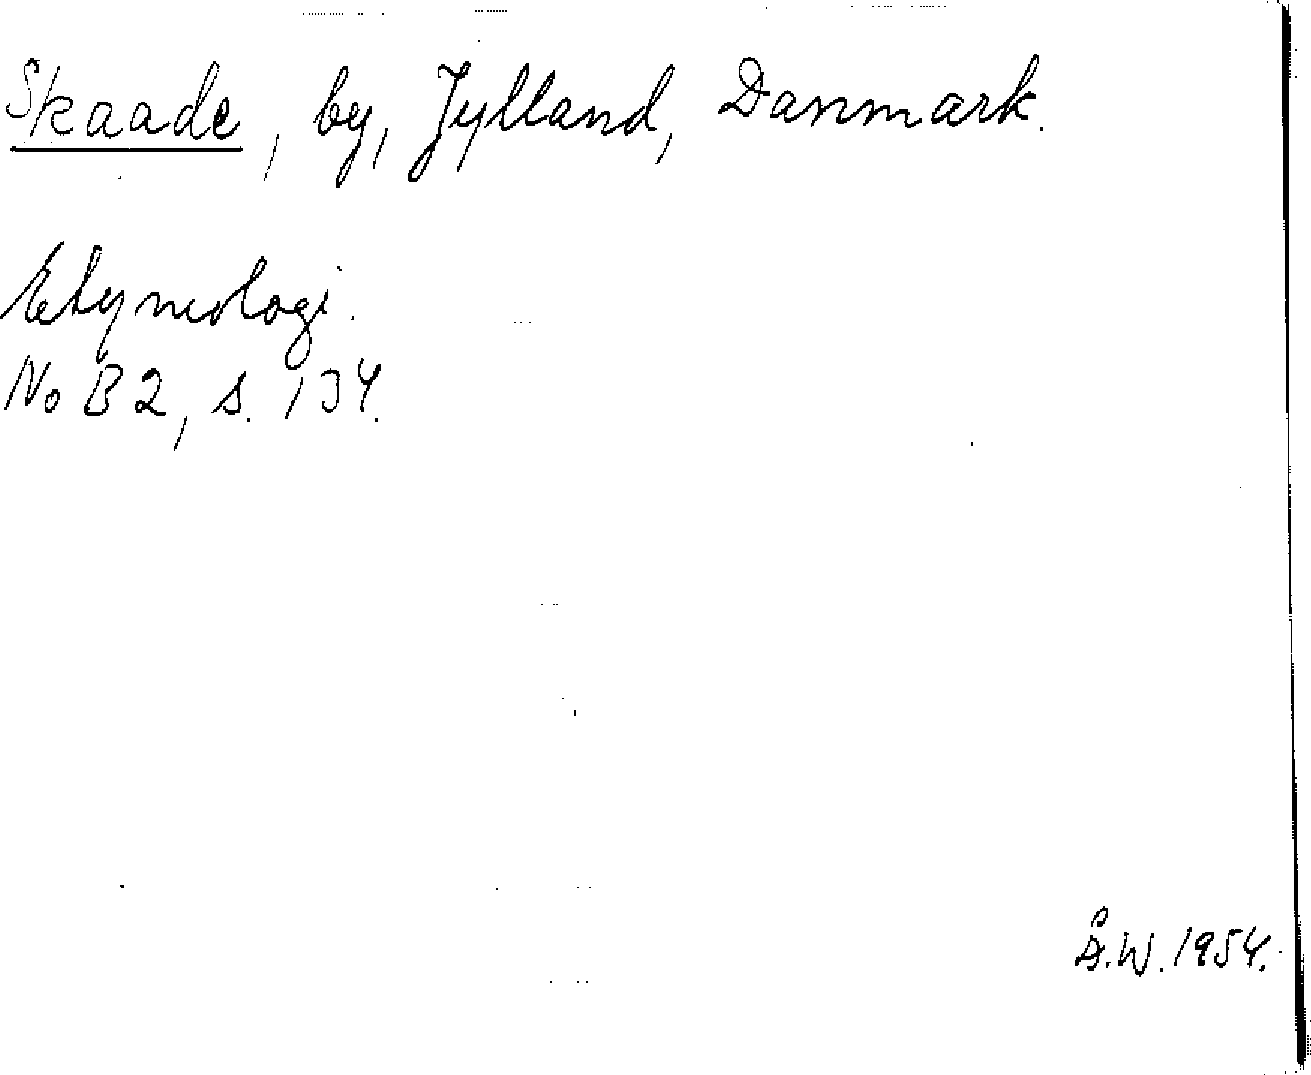 Skaade, by, Jylland, Danmark.
Etymologi.
No B 2, s. 134.
Å.W. 1954.